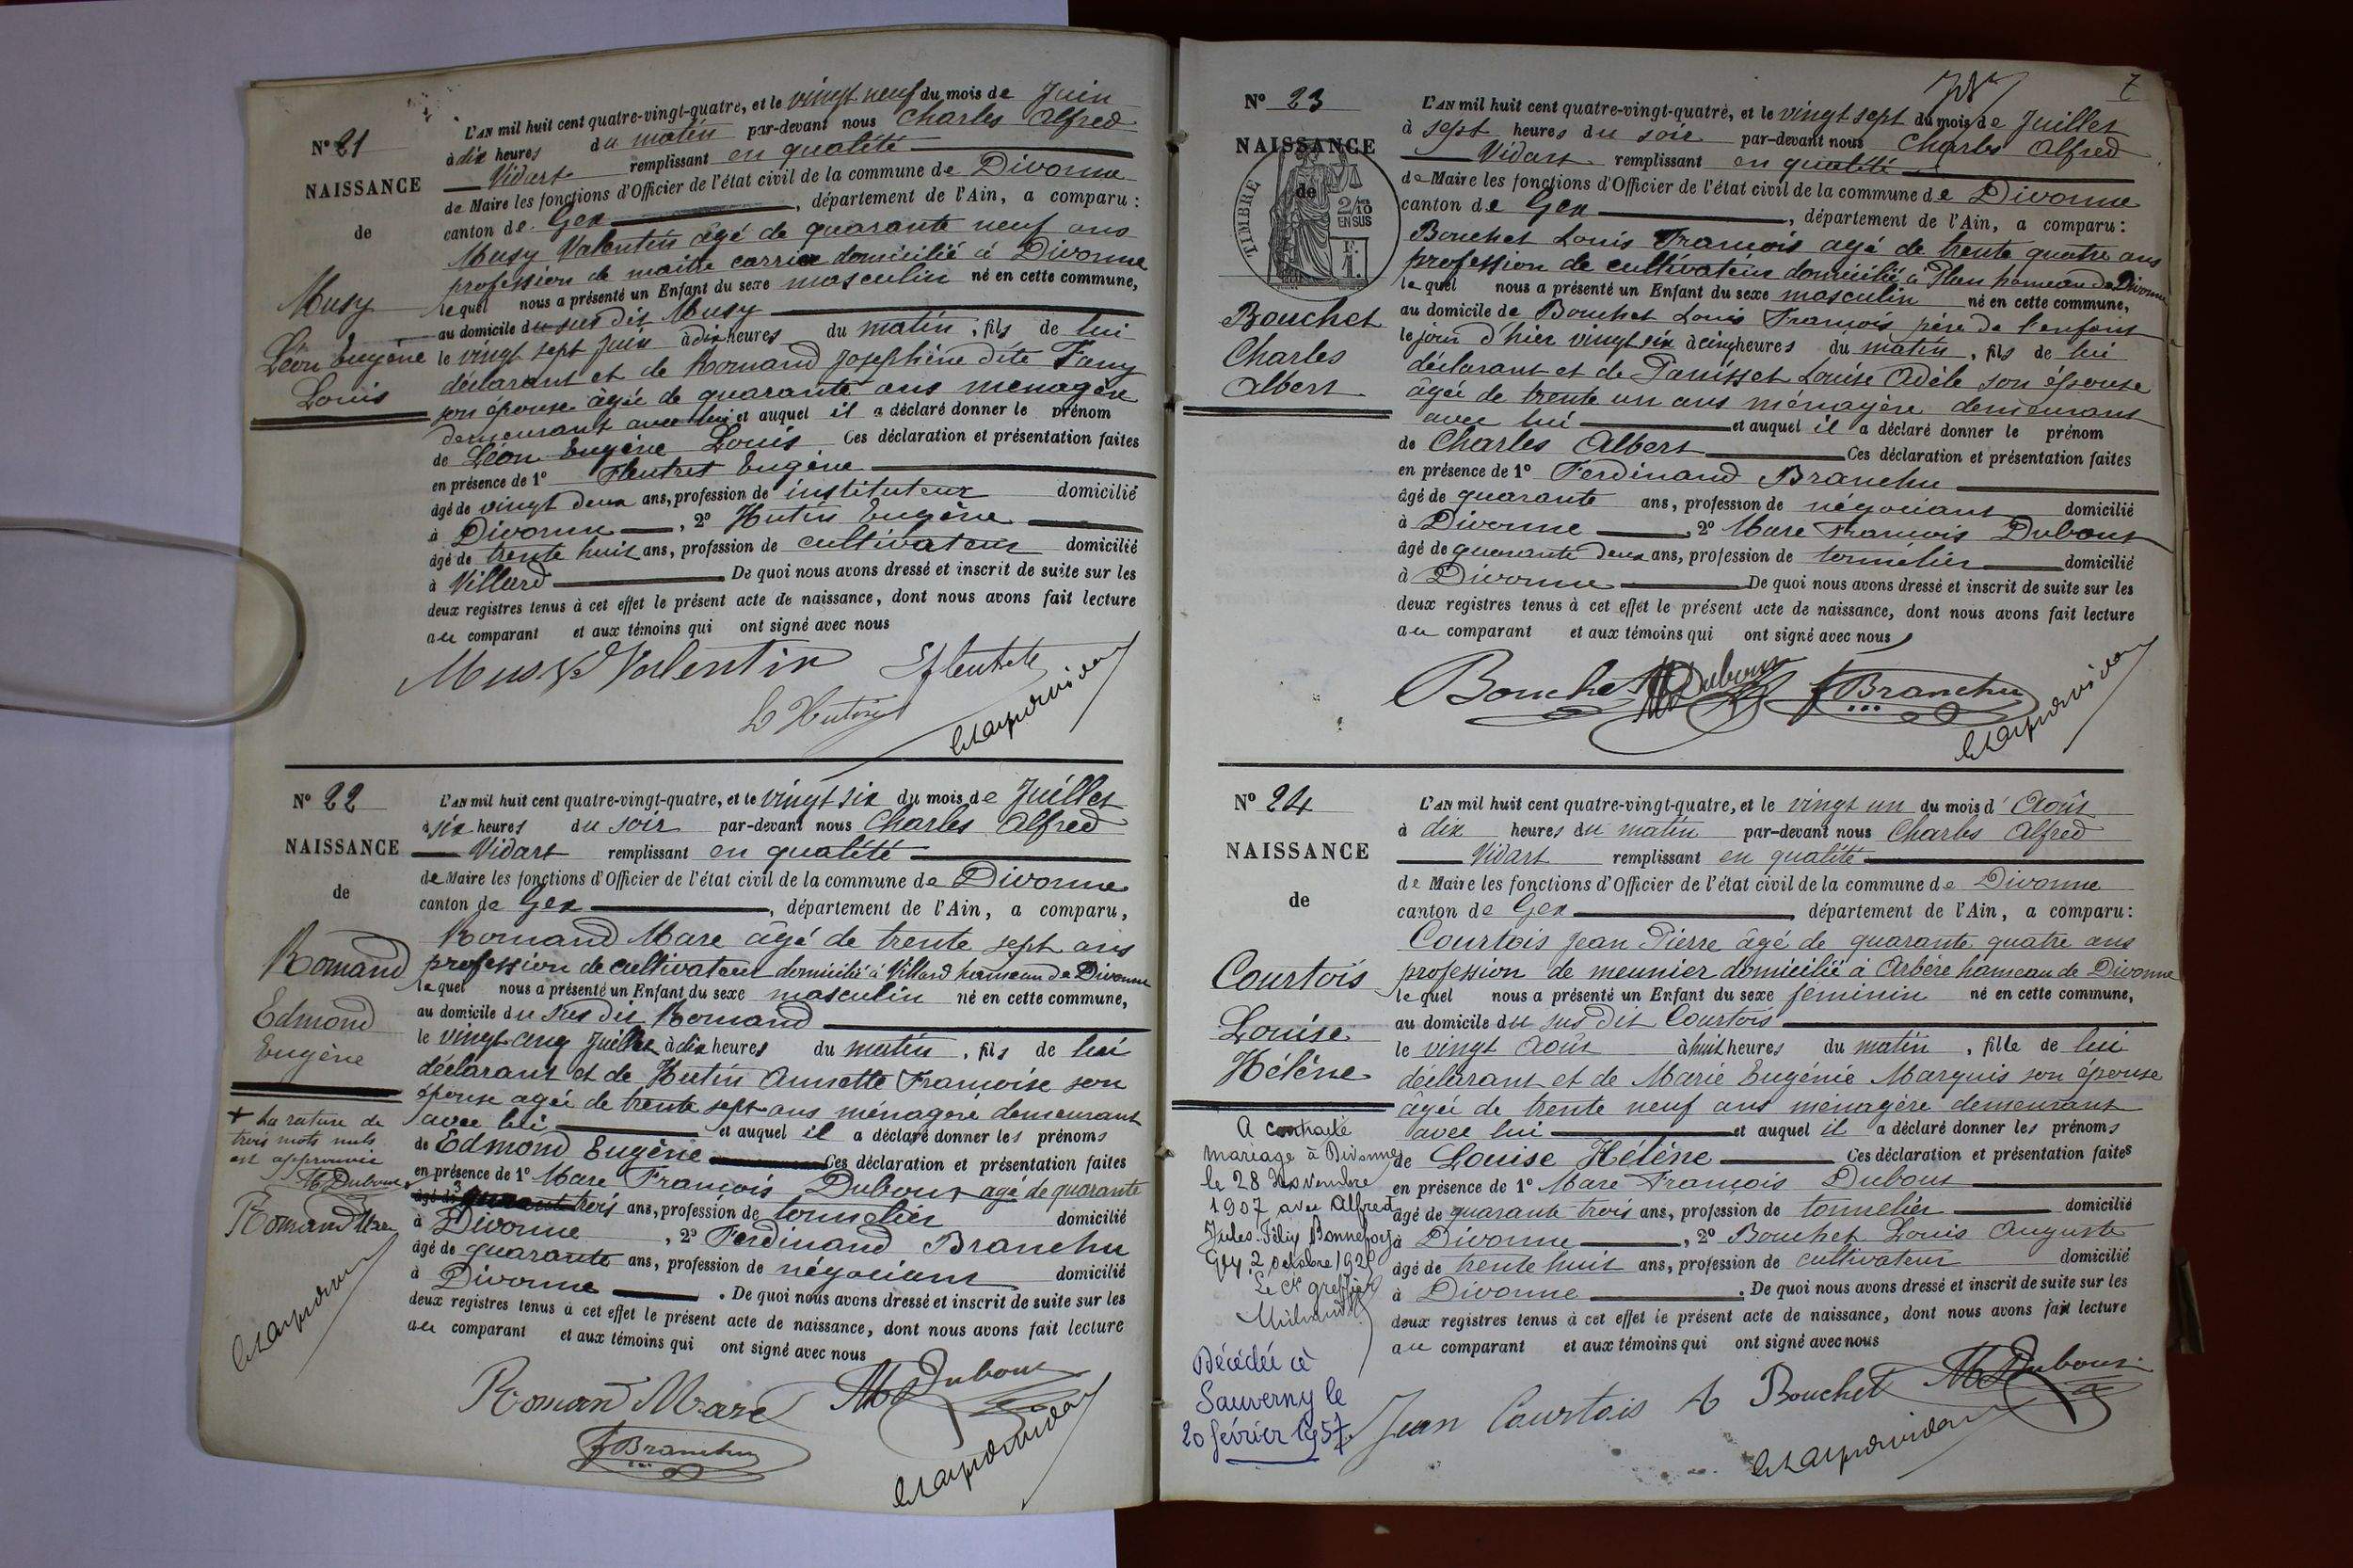 N° 21
NAISSANCE
de
Musy
Léon Eugène
Louis
L'AN mil huit cent quatre-vingt-quatre, et le vingt neuf du mois de Juin
à dix heures du matin par-devant nous Charles Alfred
Vidart remplissant en qualité
de Maire les fonctions d'Officier de l'état civil de la commune de Divonne
canton de Gex, département de l'Ain, a comparu :
Musy Valentin âgé de quarante neuf ans
profession de maître carrier domicilié à Divonne
lequel nous a présenté un Enfant du sexe masculin né en cette commune,
au domicile du sus dit Musy
le vingt sept Juin à dix heures du matin, fils de lui
déclarant et de Romand Josephine dite Fany
son épouse âgée de quarante ans ménagère
demeurant avec lui et auquel il a déclaré donner le prénom
de Léon Eugène Louis Ces déclaration et présentation faites
en présence de 1° Fleutret Eugène
âgé de vingt deux ans, profession de instituteur domicilié
à Divonne, 2° Hutin Eugène
âgé de trente huit ans, profession de cultivateur domicilié
à Villard De quoi nous avons dressé et inscrit de suite sur les
deux registres tenus à cet effet le présent acte de naissance, dont nous avons fait lecture
au comparant et aux témoins qui ont signé avec nous
Musy Valentin
N° 22
NAISSANCE
de
Romand
Edmond
Eugène
+ La rature de
trois mots nuls
est approuvée
M Dubout
Romand Marc
L'AN mil huit cent quatre-vingt-quatre, et le vingt six du mois de Juillet
à six heures du soir par-devant nous Charles Alfred
Vidart remplissant en qualité
de Maire les fonctions d'Officier de l'état civil de la commune de Divonne
canton de Gex, département de l'Ain, a comparu,
Romand Marc âgé de trente sept ans
profession de cultivateur domicilié à Villard hameau de Divonne
lequel nous a présenté un Enfant du sexe masculin né en cette commune,
au domicile du sus dit Romand
le vingt cinq Juillet à dix heures du matin, fils de lui
déclarant et de Hutin Annette Françoise son
épouse agée de trente sept ans ménagère demeurant
avec lui et auquel il a déclaré donner les prénoms
de Edmond Eugène Ces déclaration et présentation faites
en présence de 1° Marc François Dubout agé de quarante
trois ans, profession de tonnelier domicilié
à Divonne, 2° Ferdinand Branchu
âgé de quarante ans, profession de négociant domicilié
à Divonne. De quoi nous avons dressé et inscrit de suite sur les
deux registres tenus à cet effet le présent acte de naissance, dont nous avons fait lecture
au comparant et aux témoins qui ont signé avec nous
Romand Marc M Dubout
F Branchu
7
N° 23
NAISSANCE
de
TIMBRE
2/10
EN SUS
F.
1.
Bouchet
Charles
Albert
L'AN mil huit cent quatre-vingt-quatre, et le vingt sept du mois de Juillet
à sept heures du soir par-devant nous Charles Alfred
Vidart remplissant en qualité
de Maire les fonctions d'Officier de l'état civil de la commune de Divonne
canton de Gex, département de l'Ain, a comparu :
Bouchet Louis François agé de trente quatre ans
profession de cultivateur domicilié à Plan hameau de Divonne
lequel nous a présenté un Enfant du sexe masculin né en cette commune,
au domicile de Bouchet Louis François père de l'enfant
le jour d'hier vingt six à cinq heures du matin, fils de lui
déclarant et de Panisset Louise Adèle son épouse
âgée de trente un ans ménagère demeurant
avec lui et auquel il a déclaré donner le prénom
de Charles Albert Ces déclaration et présentation faites
en présence de 1° Ferdinand Branchu
âgé de quarante ans, profession de négociant domicilié
à Divonne, 2° Marc François Dubout
âgé de quarante deux ans, profession de tonnelier domicilié
à Divonne De quoi nous avons dressé et inscrit de suite sur les
deux registres tenus à cet effet le présent acte de naissance, dont nous avons fait lecture
au comparant et aux témoins qui ont signé avec nous
Bouchet M Dubout F Branchu
N° 24
NAISSANCE
de
Courtois
Louise
Hélène
A contracté
mariage à Divonne
le 28 Novembre
1907 avec Alfred
Jules Félix Bonnefoy
Gex, 2 octobre 1920
Le Cs greffier
Décédée à
Sauverny le
20 février 1957.
L'AN mil huit cent quatre-vingt-quatre, et le vingt un du mois d' Août
à dix heures du matin par-devant nous Charles Alfred
Vidart remplissant en qualité
de Maire les fonctions d'Officier de l'état civil de la commune de Divonne
canton de Gex département de l'Ain, a comparu :
Courtois Jean Pierre âgé de quarante quatre ans
profession de meunier domicilié à Arbère hameau de Divonne
lequel nous a présenté un Enfant du sexe féminin né en cette commune,
au domicile du sus dit Courtois
le vingt Août à huit heures du matin, fille de lui
déclarant et de Marie Eugénie Marquis son épouse
âgée de trente neuf ans ménagère demeurant
avec lui et auquel il a déclaré donner les prénoms
de Louise Hélène Ces déclaration et présentation faites
en présence de 1° Marc François Dubout
âgé de quarante trois ans, profession de tonnelier domicilié
à Divonne, 2° Bouchet Louis Auguste
âgé de trente huit ans, profession de cultivateur domicilié
à Divonne. De quoi nous avons dressé et inscrit de suite sur les
deux registres tenus à cet effet le présent acte de naissance, dont nous avons fait lecture
au comparant et aux témoins qui ont signé avec nous
Jean Courtois A Bouchet M Dubout